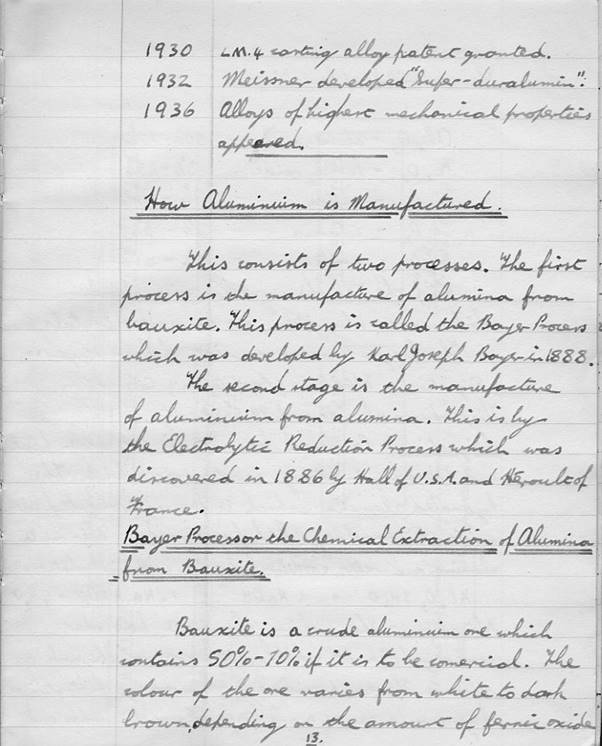 1930 L.M.4 casting alloy patent granted.
1932 Meissner developed "Super-duralumin".
1936 Alloys of highest mechanical properties
appeared.
How Aluminium is Manufactured.
This consists of two processes. The first
process is the manufacture of alumina from
bauxite. This process is called the Bayer Process
which was developed by Karl Joseph Bayer in 1888.
The second stage is the manufacture
of aluminium from alumina. This is by
the Electrolytic Reduction Process which was
discovered in 1886 by Hall of U.S.A. and Heroult of
France.
Bayer Process or the Chemical Extraction of Alumina
from Bauxite.
Bauxite is a crude aluminium ore which
contains 50%-70% if it is to be comercial. The
colour of the ore varies from white to dark
brown, depending on the amount of ferric oxide
13.